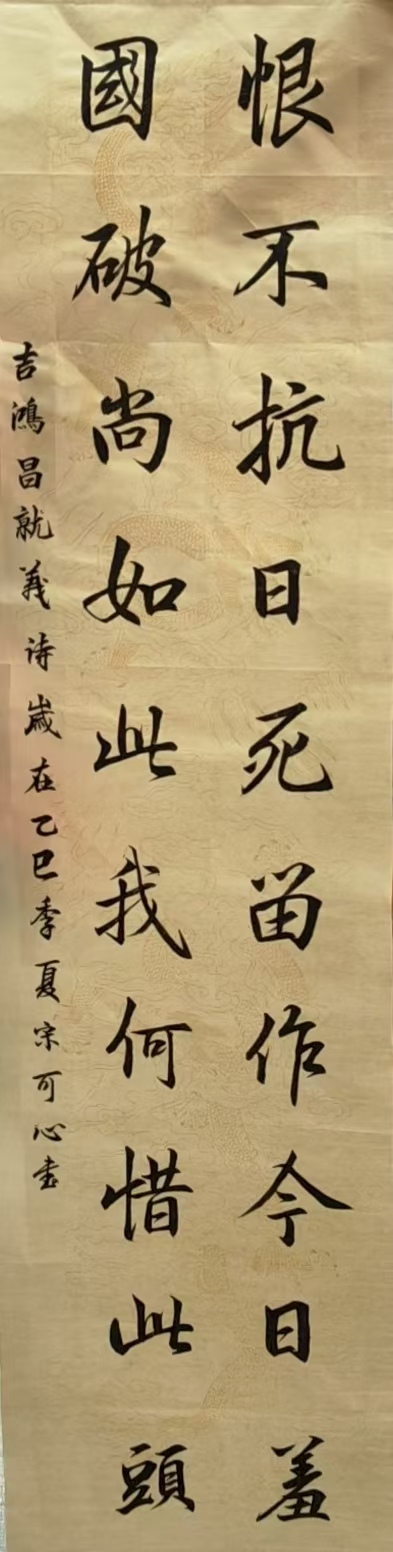 恨不抗日死留作今日羞
國破尚如此我何惜此頭
吉鴻昌就義诗歲在乙巳季夏宗可心书